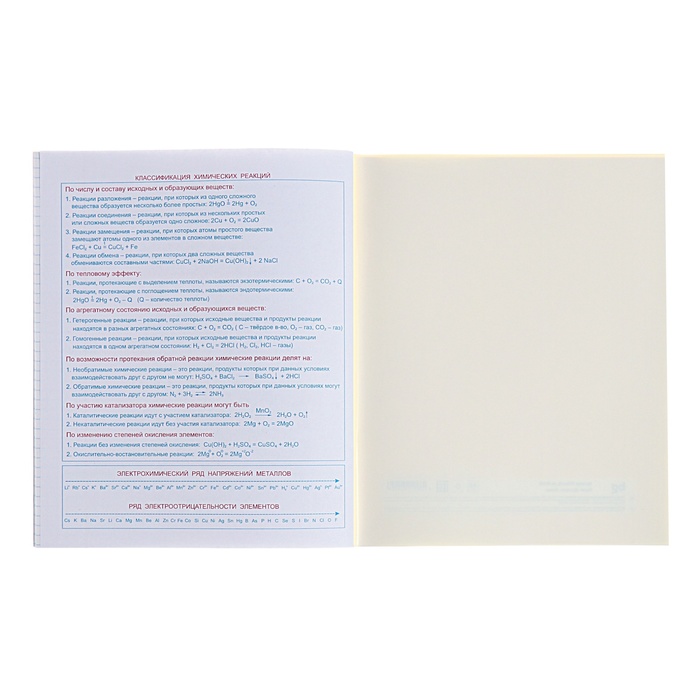 КЛАССИФИКАЦИЯ ХИМИЧЕСКИХ РЕАКЦИЙ
По числу и составу исходных и образующих веществ:
1. Реакции разложения – реакции, при которых из одного сложного
вещества образуется несколько более простых: 2HgO = 2Hg + O₂
2. Реакции соединения – реакции, при которых из нескольких простых
или сложных веществ образуется одно сложное: 2Cu + O₂ = 2CuO
3. Реакции замещения – реакции, при которых атомы простого вещества
замещают атомы одного из элементов в сложном веществе:
FeCl₂ + Cu = CuCl₂ + Fe
4. Реакции обмена – реакции, при которых два сложных вещества
обмениваются составными частями: CuCl₂ + 2NaOH = Cu(OH)₂↓ + 2 NaCl
По тепловому эффекту:
1. Реакции, протекающие с выделением теплоты, называются экзотермическими: C + O₂ = CO₂ + Q
2. Реакции, протекающие с поглощением теплоты, называются эндотермическими:
2HgO = 2Hg + O₂ – Q (Q – количество теплоты)
По агрегатному состоянию исходных и образующихся веществ:
1. Гетерогенные реакции – реакции, при которых исходные вещества и продукты реакции
находятся в разных агрегатных состояниях: C + O₂ = CO₂ ( C – твёрдое в-во, O₂ – газ, CO₂ – газ)
2. Гомогенные реакции – реакции, при которых исходные вещества и продукты реакции
находятся в одном агрегатном состоянии: H₂ + Cl₂ = 2HCl ( H₂, Cl₂, HCl – газы)
По возможности протекания обратной реакции химические реакции делят на:
1. Необратимые химические реакции – это реакции, продукты которых при данных условиях
взаимодействовать друг с другом не могут: H₂SO₄ + BaCl₂ → BaSO₄↓ + 2HCl
2. Обратимые химические реакции – это реакции, продукты которых при данных условиях могут
взаимодействовать друг с другом: N₂ + 3H₂ ⇄ 2NH₃
По участию катализатора химические реакции могут быть
1. Каталитические реакции идут с участием катализатора: 2H₂O₂ MnO₂ → 2H₂O + O₂↑
2. Некаталитические реакции идут без участия катализатора: 2Mg + O₂ = 2MgO
По изменению степеней окисления элементов:
1. Реакции без изменения степеней окисления: Cu(OH)₂ + H₂SO₄ = CuSO₄ + 2H₂O
2. Окислительно-восстановительные реакции: 2Mg⁰ + O₂⁰ = 2Mg⁺²O⁻²
ЭЛЕКТРОХИМИЧЕСКИЙ РЯД НАПРЯЖЕНИЙ МЕТАЛЛОВ
РЯД ЭЛЕКТРООТРИЦАТЕЛЬНОСТИ ЭЛЕМЕНТОВ
Cs K Ba Na Sr Li Ca Mg Mn Be Al Zn Cr Fe Co Si Cu Ni Ag Sn Hg B As P H C Se S I Br N Cl O F